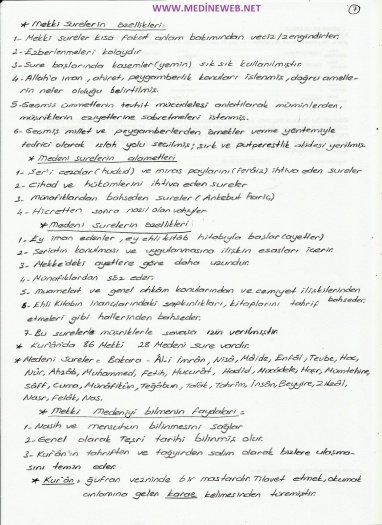 www.MEDINEWEB.NET
7
* Mekki Surelerin özellikleri:
1- Mekki sureler kısa fakat anlam bakımından veciz/zengindirler.
2- Ezberlenmeleri kolaydır
3- Sure başlarında kasemler (yemin) sık sık kullanılmıştır.
4- Allah'a iman, ahiret, peygamberlik konuları işlenmiş, doğru amelle-
rin neler olduğu belirtilmiş.
5- Geçmiş ümmetlerin tevhit mücadelesi anlatılarak müminlerden,
müşriklerin eziyetlerine sabretmeleri istenmiş.
6- Geçmiş millet ve peygamberlerden örnekler verme yöntemiyle
tedrici olarak ıslah yolu seçilmiş; şirk ve putperestlik akidesi yerilmiş.
* Medeni surelerin alametleri
1- Şer'i cezalar (hudud) ve miras paylarını (feraiz) ihtiva eden sureler
2- Cihad ve hükümlerini ihtiva eden sureler
3- Münafıklardan bahseden sureler (Ankebut hariç)
4- Hicretten sonra nazil olan vahiyler
* Medeni surelerin özellikleri
1- Ey iman edenler, ey ehli kitâb hitabıyla başlar (ayetler)
2- Şeriatın konulması ve uygulanmasına ilişkin esasları içerir.
3- Mekke'deki ayetlere göre daha uzundur.
4- Münafıklardan söz eder.
5- Muamelat ve genel ahkâm konularından ve cemiyet ilişkilerinden bahseder.
6- Ehli Kitabın inançlarındaki sapkınlıkları, kitaplarını tahrif
etmeleri gibi hallerinden bahseder.
7- Bu surelerle müşriklerle savaşa izin verilmiştir.
* Kur'ân'da 86 Mekki 28 Medeni Sure vardır.
* Medeni Sureler = Bakara - Âl-i İmrân, Nisâ, Mâide, Enfâl, Tevbe, Hac,
Nûr, Ahzâb, Muhammed, Fetih, Hucurât, Hadid, Mücâdele, Haşr, Mümtehine,
Sâff, Cuma, Münâfikûn, Teğâbun, Talâk, Tahrîm, İnsân, Beyyine, Zilzâl,
Nasr, Felâk, Nas.
* Mekki Medeniyi bilmenin Faydaları =
1- Nasih ve mensuhun bilinmesini sağlar
2- Genel olarak Teşri tarihi bilinmiş olur.
3- Kur'ân'ın tahriften ve tağyirden salim olarak bizlere ulaşma-
sını temin eder.
* Kur'ân = ğufran vezninde bir mastardır. Tilavet etmek, okumak
anlamına gelen karae kelimesinden türemiştir.